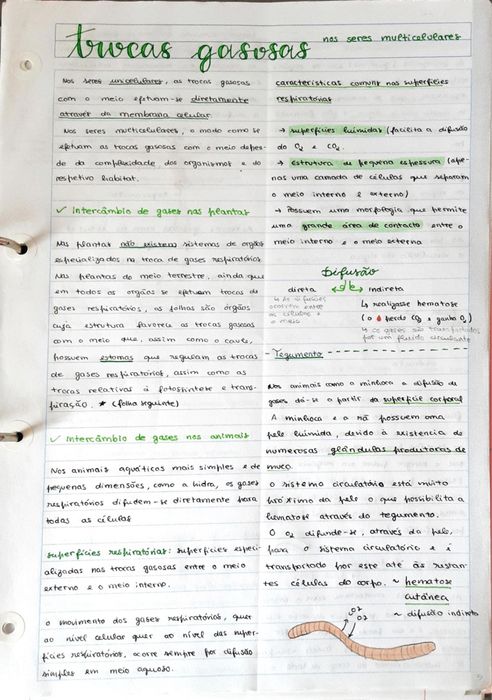 trocas gasosas
nos seres multicelulares
Nos seres unicelulares, as trocas gasosas
com o meio efetuam-se diretamente
através da membrana celular.
Nos seres multicelulares, o modo como se
efetuam as trocas gasosas com o meio depen-
de da complexidade dos organismos e do
respetivo habitat.
✓ Intercâmbio de gases nas plantas
Nas plantas não existem sistemas de orgãos
especializados na troca de gases respiratórios
Nas plantas do meio terrestre, ainda que
em todos os orgãos se efetuam trocas de
gases respiratórios, as folhas são órgãos
cuja estrutura favorece as trocas gasosas
com o meio que, assim como o caule,
possuem estomas que regulam as trocas
de gases respiratórios, assim como as
trocas relativas à fotossíntese e trans-
piração. ★ (folha seguinte)
✓ Intercâmbio de gases nos animais
Nos animais aquáticos mais simples e de
pequenas dimensões, como a hidra, os gases
respiratórios difudem-se diretamente para
todas as células
superfícies respiratórias: superfícies especi-
alizadas nas trocas gasosas entre o meio
externo e o meio interno.
o movimento dos gases respiratórios, quer
ao nível celular quer ao nível das super-
fícies respiratórias, ocorre sempre por difusão
simples em meio aquoso.
características comuns nas superfícies
respiratórias
→ superfícies húmidas (facilita a difusão
do O2 e CO2.
→ estrutura de pequena espessura (ape-
nas uma camada de células que separam
o meio interno e externo)
→ Possuem uma morfologia que permite
uma grande área de contacto entre o
meio interno e o meio externa
Difusão
direta indireta
↳ As difusões
ocorrem entre
as células e
o meio
↳ realizasse hematose
(o perde CO2 e ganha O2)
↳ os gases são transportados
por um fluido circulante
- Tegumento
Nos animais como a minhoca a difusão de
gases dá-se a partir da superfície corporal
A minhoca e a rã possuem uma
pele húmida, devido à existencia de
numerosas glândulas produtoras de
muco.
O sistema circulatório está muito
próximo da pele o que possibilita a
hematose através do tegumento.
O O2 difunde-se, através da pele,
para o sistema circulatório e é
transportado por este até às restan-
tes células do corpo. ~ hematose
cutânea
~ difusão indireta